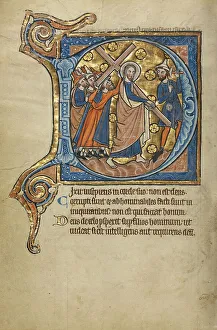 Dixit insipiens in corde suo: non est deus
Corrupti sunt & abhominabiles facti sunt in
iniquitatibus: non est qui faciat bonum.
Deus de celo prospexit super filios hominum: ut
videat si est intelligens aut requirens deum.